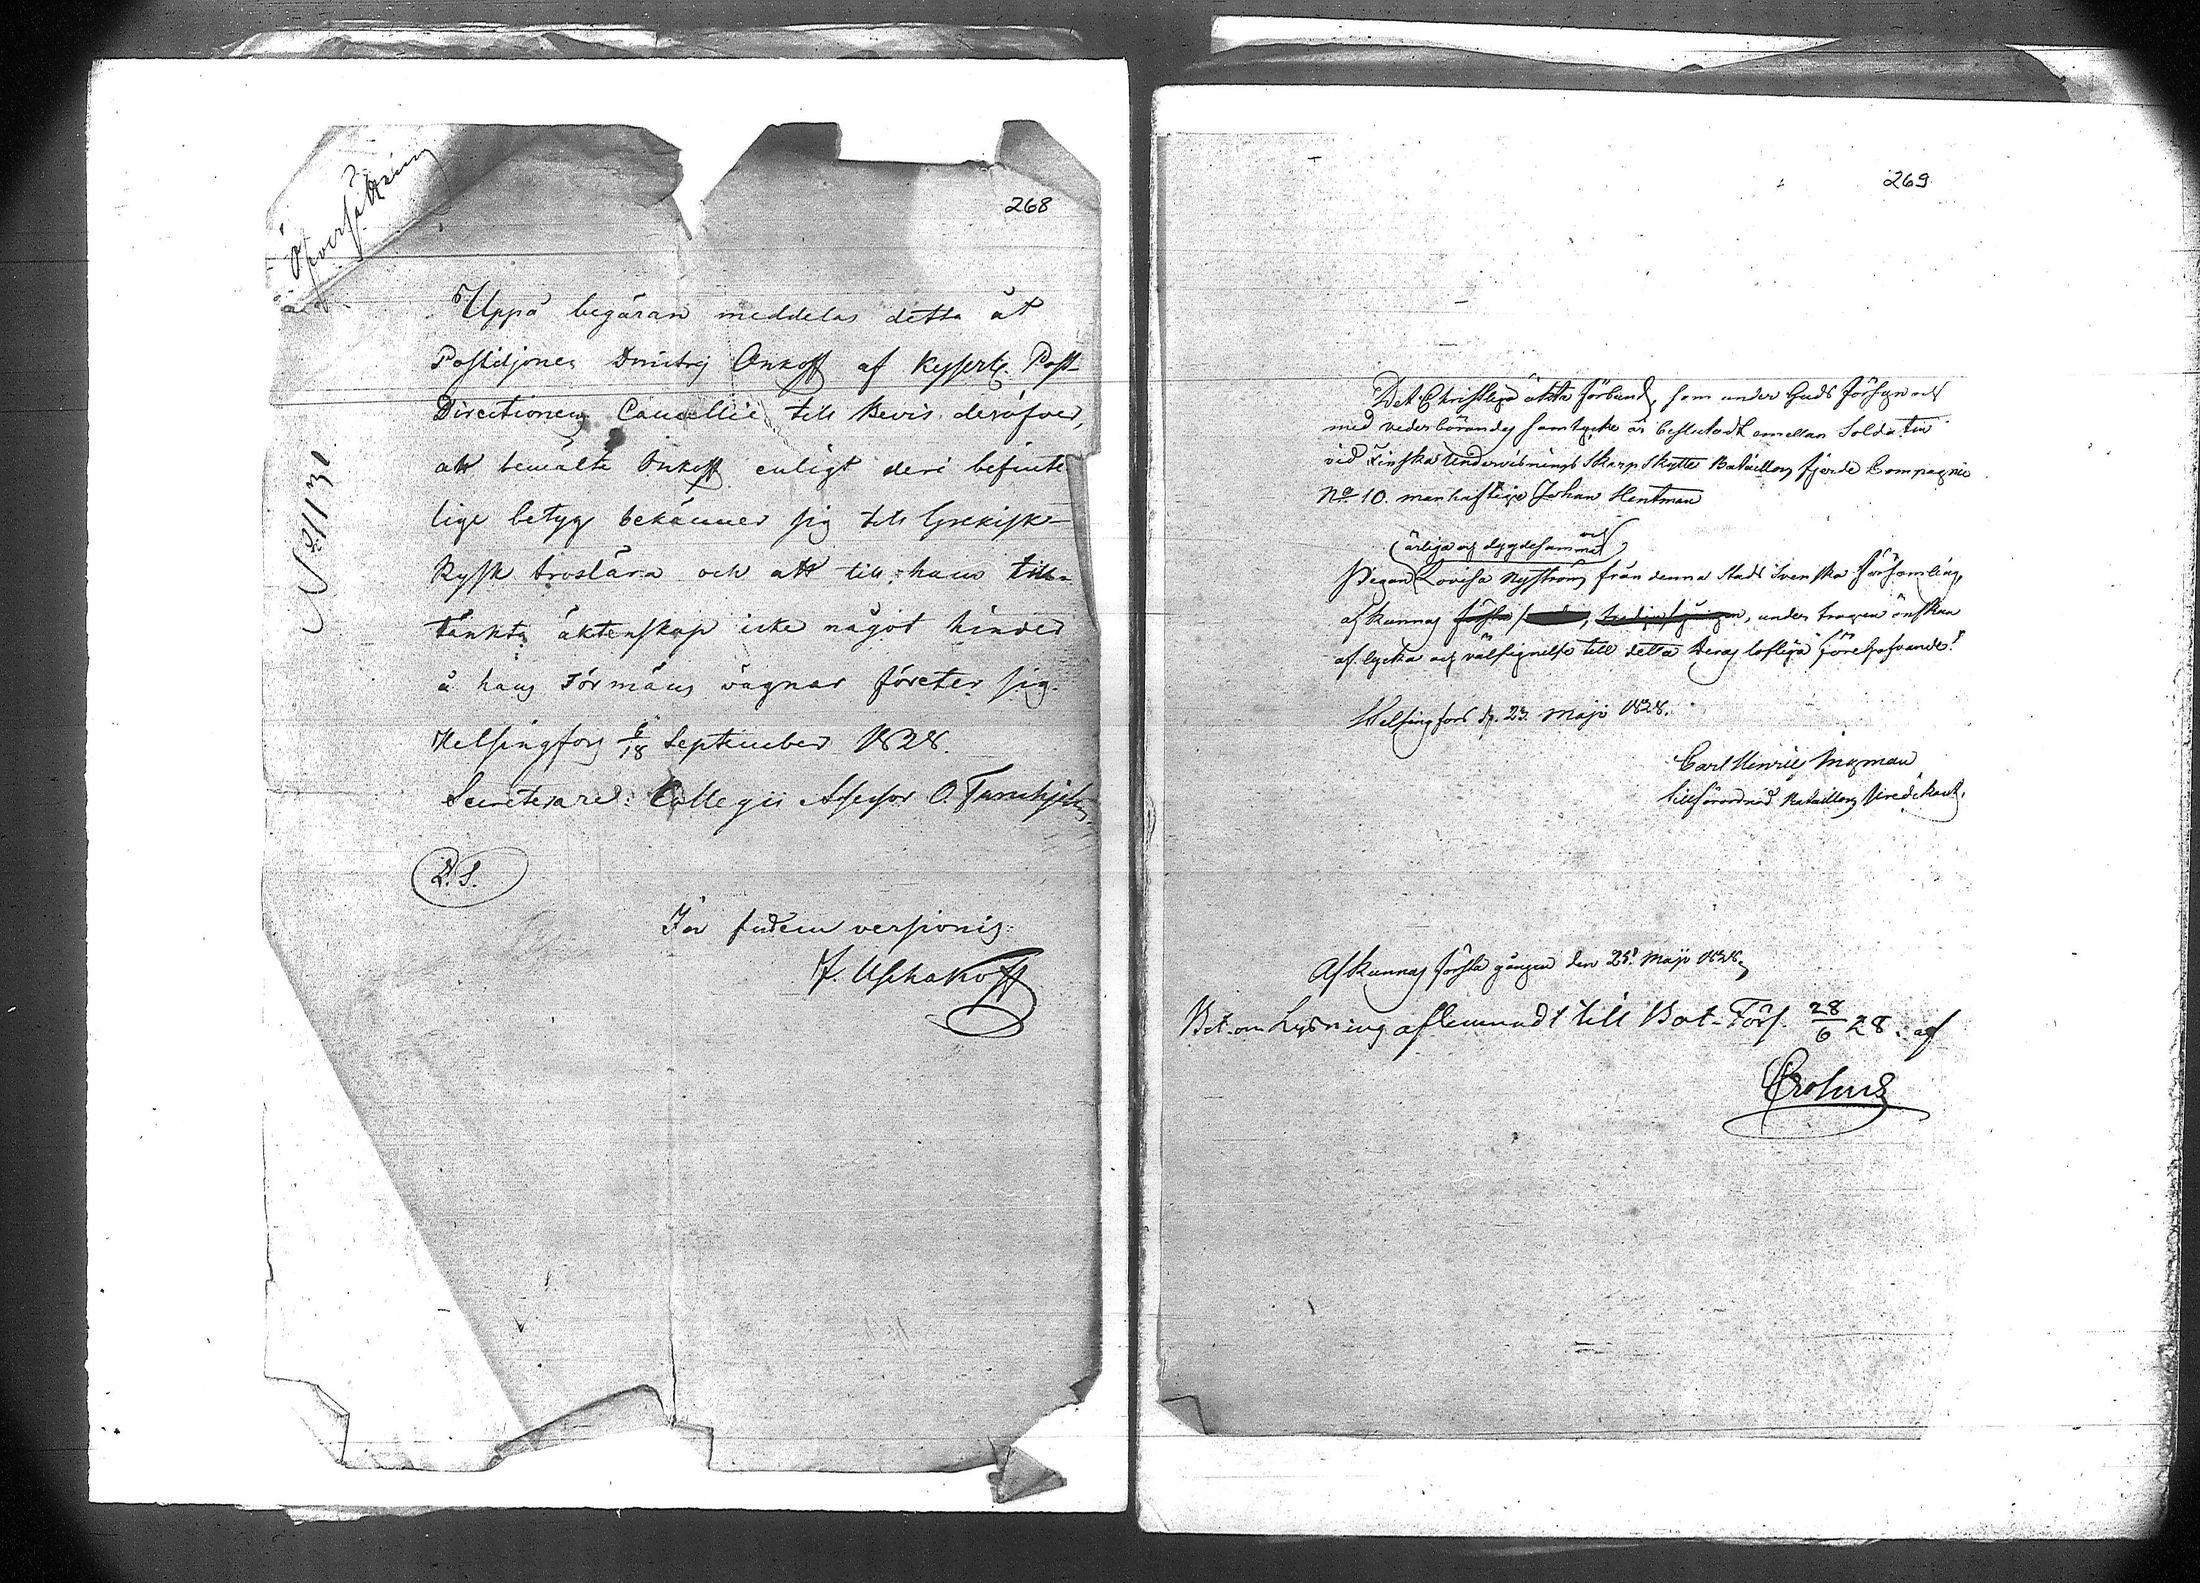 Öfversättning
268
N:o 1131
Uppå begäran meddelas detta åt
Postiljonen Dmitrij Onkoff af Ryssk. Post-
Directionens Cancellie till Bevis deröfver,
att bemälte Onkoff enligt deri befint-
lige betyg bekänner sig till Grekisk-
Rysk troslära och att till hans till-
tänkta äktenskap icke något hinder
å hans Förmäns vägnar företer sig.
Helsingfors 6/18 September 1828.
Secreterare: Collegii Assessor O.
L. S.
In fidem versionis:
J. Uschakoff
269
Det Christliga äkta förbund, som under Guds försyn och
med vederbörandes samtycke är beslutadt emellan Soldaten
vid Finska Undervisnings Skarp Skytte Bataillon fjerde Compagnie
No 10. manhaftige Johan Hentman
och
(ärliga och dygdesamma)
Pigan Lovisa Nyström från denna Stads Svenska Församling,
afkunnas första tredje gången, under trogen önskan
af lycka och välsignelse till detta Deras lofliga företagande!
Helsingfors d. 23 Maji 1828.
Carl Henric Ingman
tillförordnad Bataillons Predikant.
Afkunnas första gången den 25 Maji 1828,
Bet. om Lysning aflemnadt till Bat-Förs. 28/6 28. af
Crohns